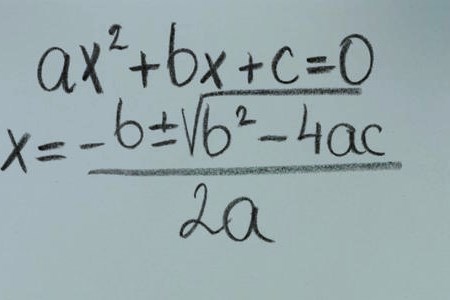 ax² + bx + c = 0
x = -b ± √b² - 4ac
2a